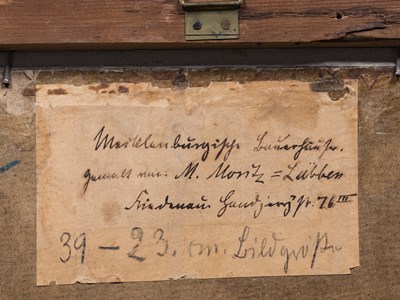 Mecklenburgische Bauernhäuser.
gemalt von: M. Moritz=Lübben
Friedenau Handjerystr. 76 III
39 – 23. cm. Bildgröße